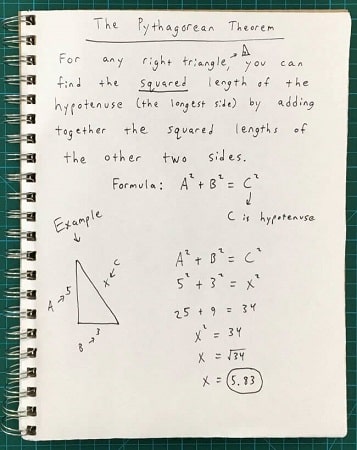 The Pythagorean Theorem
For any right triangle, you can
find the squared length of the
hypotenuse (the longest side) by adding
together the squared lengths of
the other two sides.
Formula: A² + B² = C²
C is hypotenuse
Example
A
5
C
x
3
B
A² + B² = C²
5² + 3² = x²
25 + 9 = 34
x² = 34
x = √34
x = 5.83